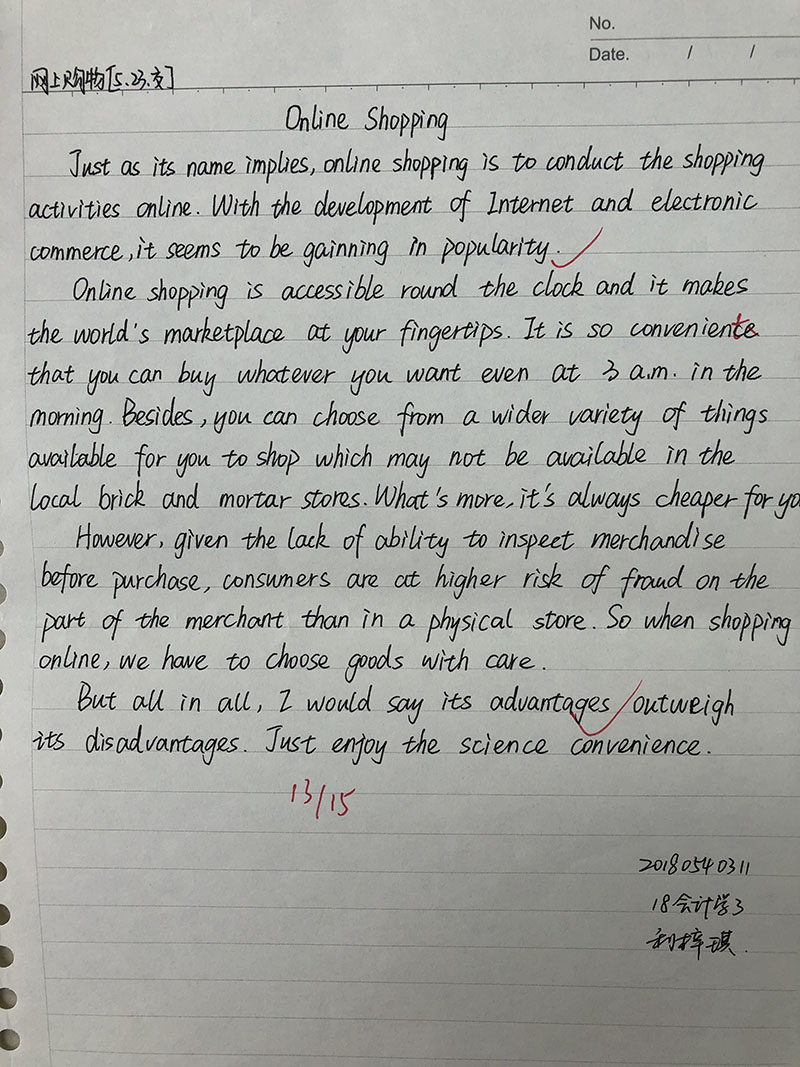 No.
Date. / /
网上购物[5.23.交]
Online Shopping
Just as its name implies, online shopping is to conduct the shopping
activities online. With the development of Internet and electronic
commerce, it seems to be gainning in popularity.
Online shopping is accessible round the clock and it makes
the world's marketplace at your fingertips. It is so convenient
that you can buy whatever you want even at 3 a.m. in the
morning. Besides, you can choose from a wider variety of things
available for you to shop which may not be available in the
local brick and mortar stores. What's more, it's always cheaper for yo
However, given the lack of ability to inspect merchandise
before purchase, consumers are at higher risk of fraud on the
part of the merchant than in a physical store. So when shopping
online, we have to choose goods with care.
But all in all, I would say its advantages outweigh
its disadvantages. Just enjoy the science convenience.
13/15
20180540311
18会计学3
利梓琪.